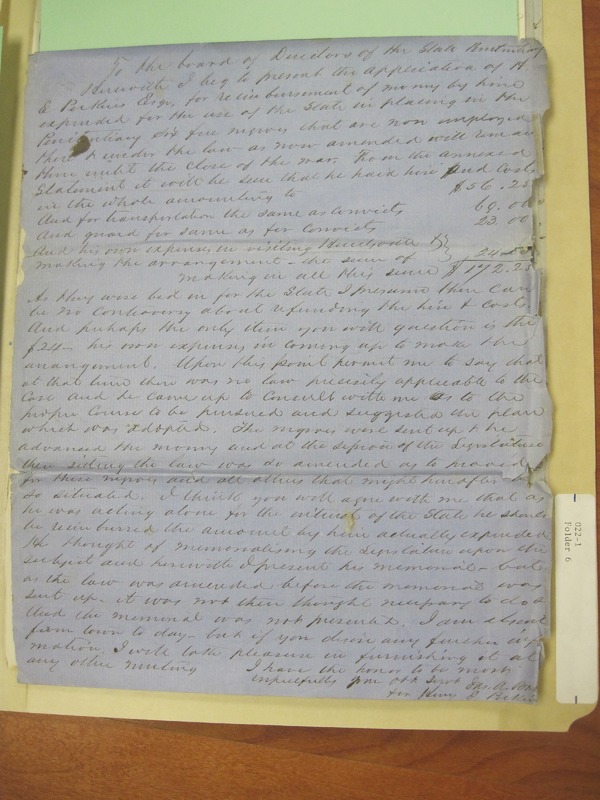 To the board of Directors of the State Penitentiary
Herewith I beg to present the application of H
E Perkins Esqr, for reimbursement of money by him
expended for the use of the State in placing in the
Penitentiary six free negroes that are now employed
there & under the law as now amended will remain
there until the close of the war. From the annexed
Statement it will be seen that he paid hire and costs
in the whole amounting to $56.25
And for transportation the same as convicts 69.00
And guard for same as for convicts 23.00
And his own expenses in visiting Huntsville &
making the arrangement - the sum of 24.00
making in all this sum $172.25
As they were bid in for the State I presume there can
be no controversy about refunding the hire & costs.
And perhaps the only item you will question is the
$24- his own expenses in coming up to make the
arrangement. Upon this point permit me to say that
at that time there was no law precisely applicable to the
case and he came up to consult with me as to the
proper course to be pursued and suggested the plan
which was adopted. The negroes were sent up & he
advanced the money and at the session of the Legislature
then sitting the law was so amended as to provide
for these negroes and all others that might hereafter be
so situated. I think you will agree with me that as
he was acting alone for the interest of the State he should
be reimbursed the amount by him actually expended
He thought of memorialising the Legislature upon the
subject and herewith I present his memorial - but
as the law was amended before the memorial was
sent up - it was not then thought necessary to do so
And the memorial was not presented. I am absent
from town to day - but if you desire any further infor
mation, I will take pleasure in furnishing it at
any other meeting I have the honor to be most
respectfully your obt servt
for Henry E Perkins
022-1
Folder 6